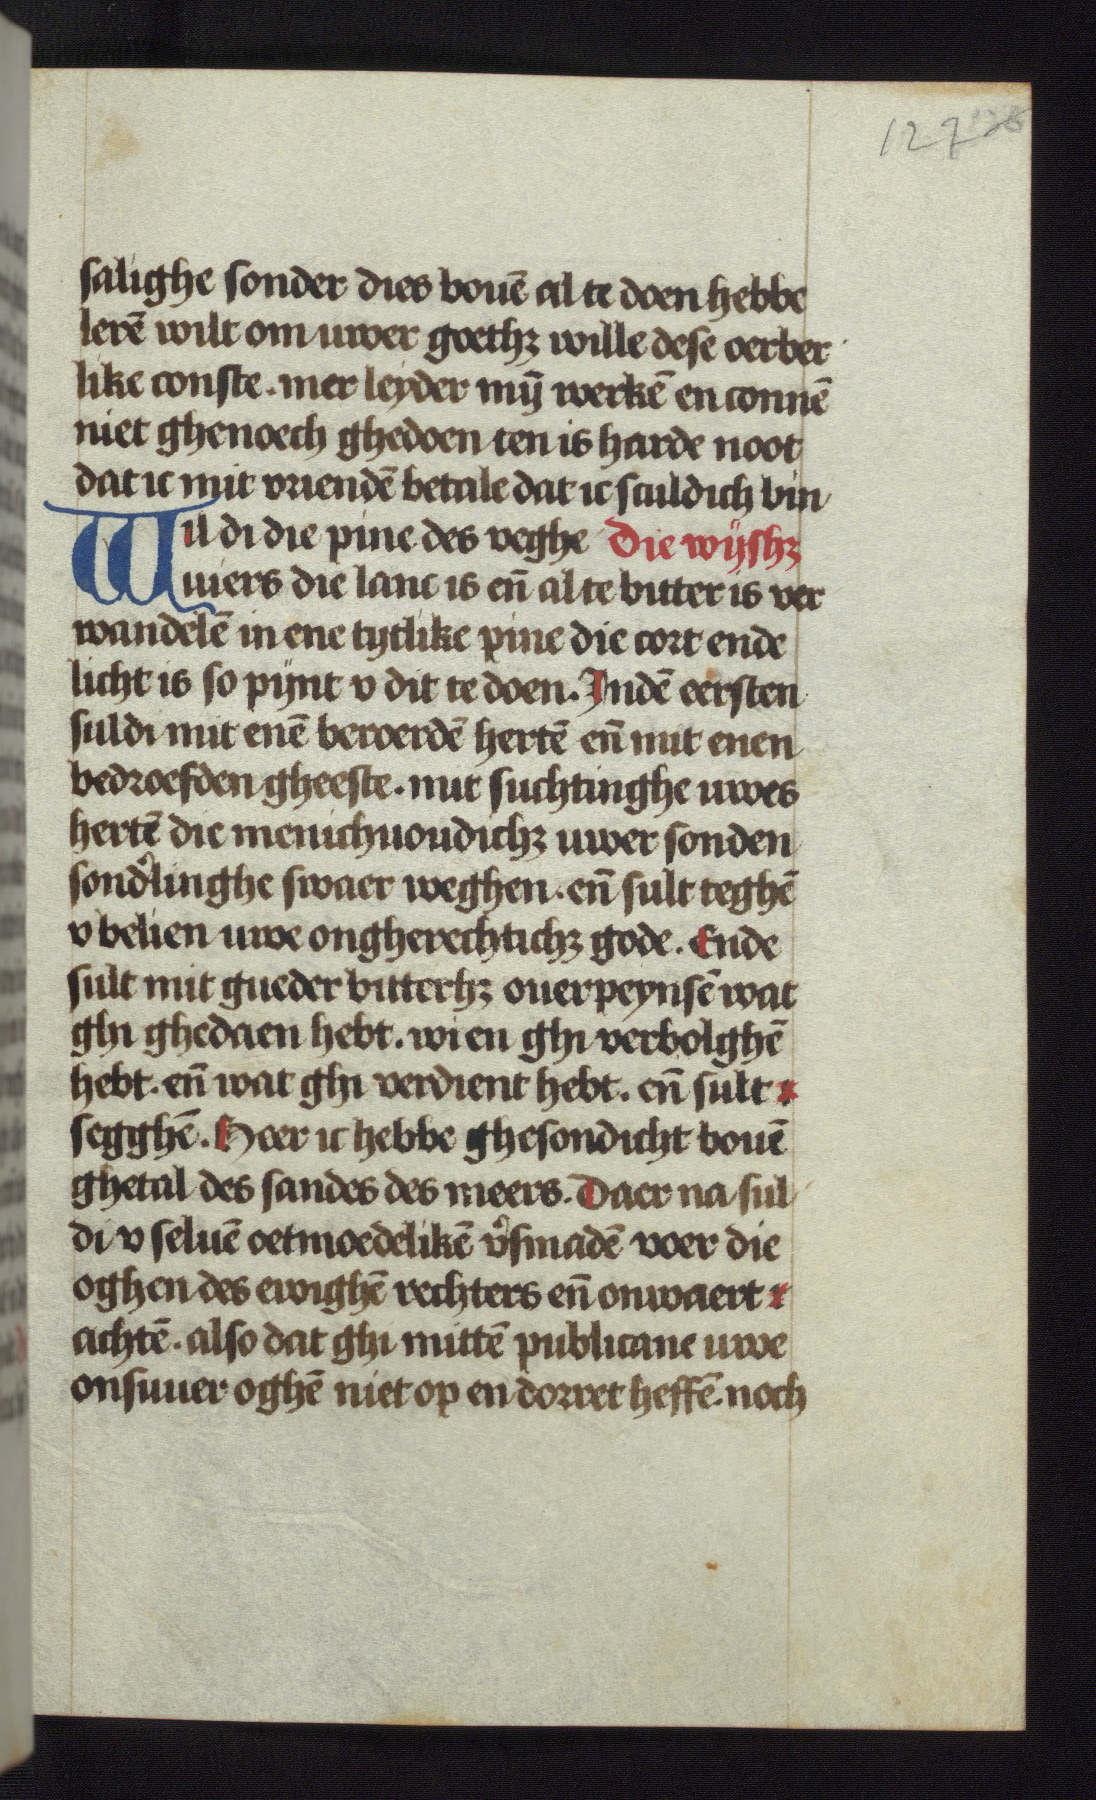 127 126
salighe sonder dies bouē al te doen hebbe
lerē wilt om uwer goethꝫ wille dese oerber
like conste. mer leyder mijn̄ werkē en connē
niet ghenoech ghedoen ten is harde noot
dat ic mit vriendē betale dat ic sculdich bin
Wil di die pine des veghe Die wijshꝫ
uiers die lanc is en̄ al te bitter is ver
wandelē in ene tytlike pine die cort ende
licht is so pijnt v dit te doen. Indē eersten
suldi mit enē beroerdē hertē en̄ mit enen
bedroefden gheeste. mit suchtinghe uwes
hertē die menichuoudichꝫ uwer sonden
sond᾽linghe swaer weghen. en̄ sult teghē
v belien uwe ongherechtichꝫ gode. Ende
sult mit gueder bitterhꝫ ouerpeynsē wat
ghi ghedaen hebt. wien ghi verbolghē
hebt. en̄ wat ghi verdient hebt. en̄ sult
segghē. Heer ic hebbe ghesondicht bouē
ghetal des sandes des meers. Daer na sul
di v seluē oetmoedelikē v᾽smadē voer die
oghen des ewighē rechters en̄ onwaert
achtē. also dat ghi mittē publicane uwe
onsuuer oghē niet op en dorret heffē. noch